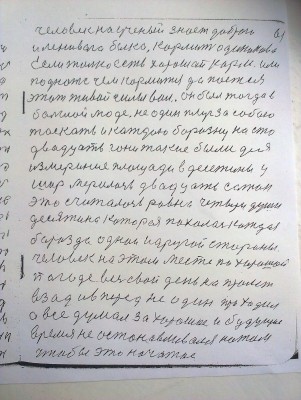 человек научений знает доброго
и ленивого быка, кормит одинаково
если только есть хороший корм. или
поднoж чем кормится да поится
этот живой силы вол. он был тогда в
большой моде, не один плуг за собою
таскать и каждою борозну на сто
двадцать гони такие были для
измерения площади в десятины у
шир мерилась двадцать сажен
это считалось равно четверти
десятина которая пахалась каждая
борозда одной и другой стороны
человек на этом месте по хорошей
погоде весь свой день на пролёт
взад и вперед не один проходил
о все думал за хорошие и будущие
время не останавливался на том
чтобы это начатое